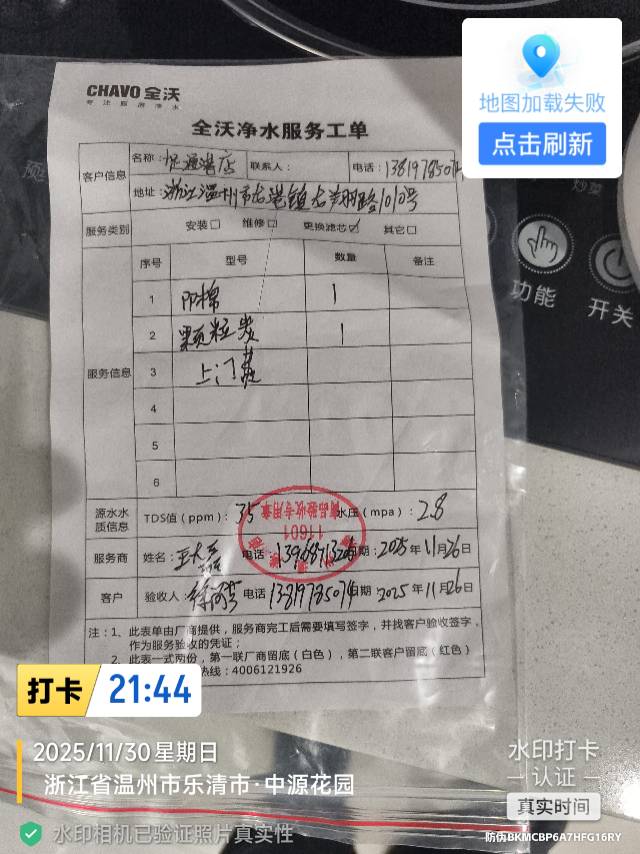 地图加载失败
点击刷新
CHAVO 全沃
专注厨房净水
全沃净水服务工单
客户信息
名称:
港店
联系人:
电话: 13819785074
地址: 浙江温州市
镇
路1010号
服务类别
安装□ 维修□ 更换滤芯☑ 其它□
服务信息
序号 型号 数量 备注
1 PP棉 1
2 颗粒炭 1
3 上门费
4
5
6
源水水质信息
TDS值(ppm): 35 水压(mpa): 2.8
商品验收专用章
11601
服务商 姓名: 电话: 日期: 2025年11月26日
客户 验收人: 电话 13819785074 日期: 2025年11月26日
注:1、此表单由厂商提供,服务商完工后需要填写签字,并找客户验收签字,
作为服务验收的凭证;
2、此表一式两份,第一联厂商留底(白色),第二联客户留底(红色)
热线:4006121926
功能
开关
打卡 21:44
2025/11/30 星期日
浙江省温州市乐清市·中源花园
水印打卡
认证
真实时间
水印相机已验证照片真实性
防伪BKMCBP6A7HFG16RY